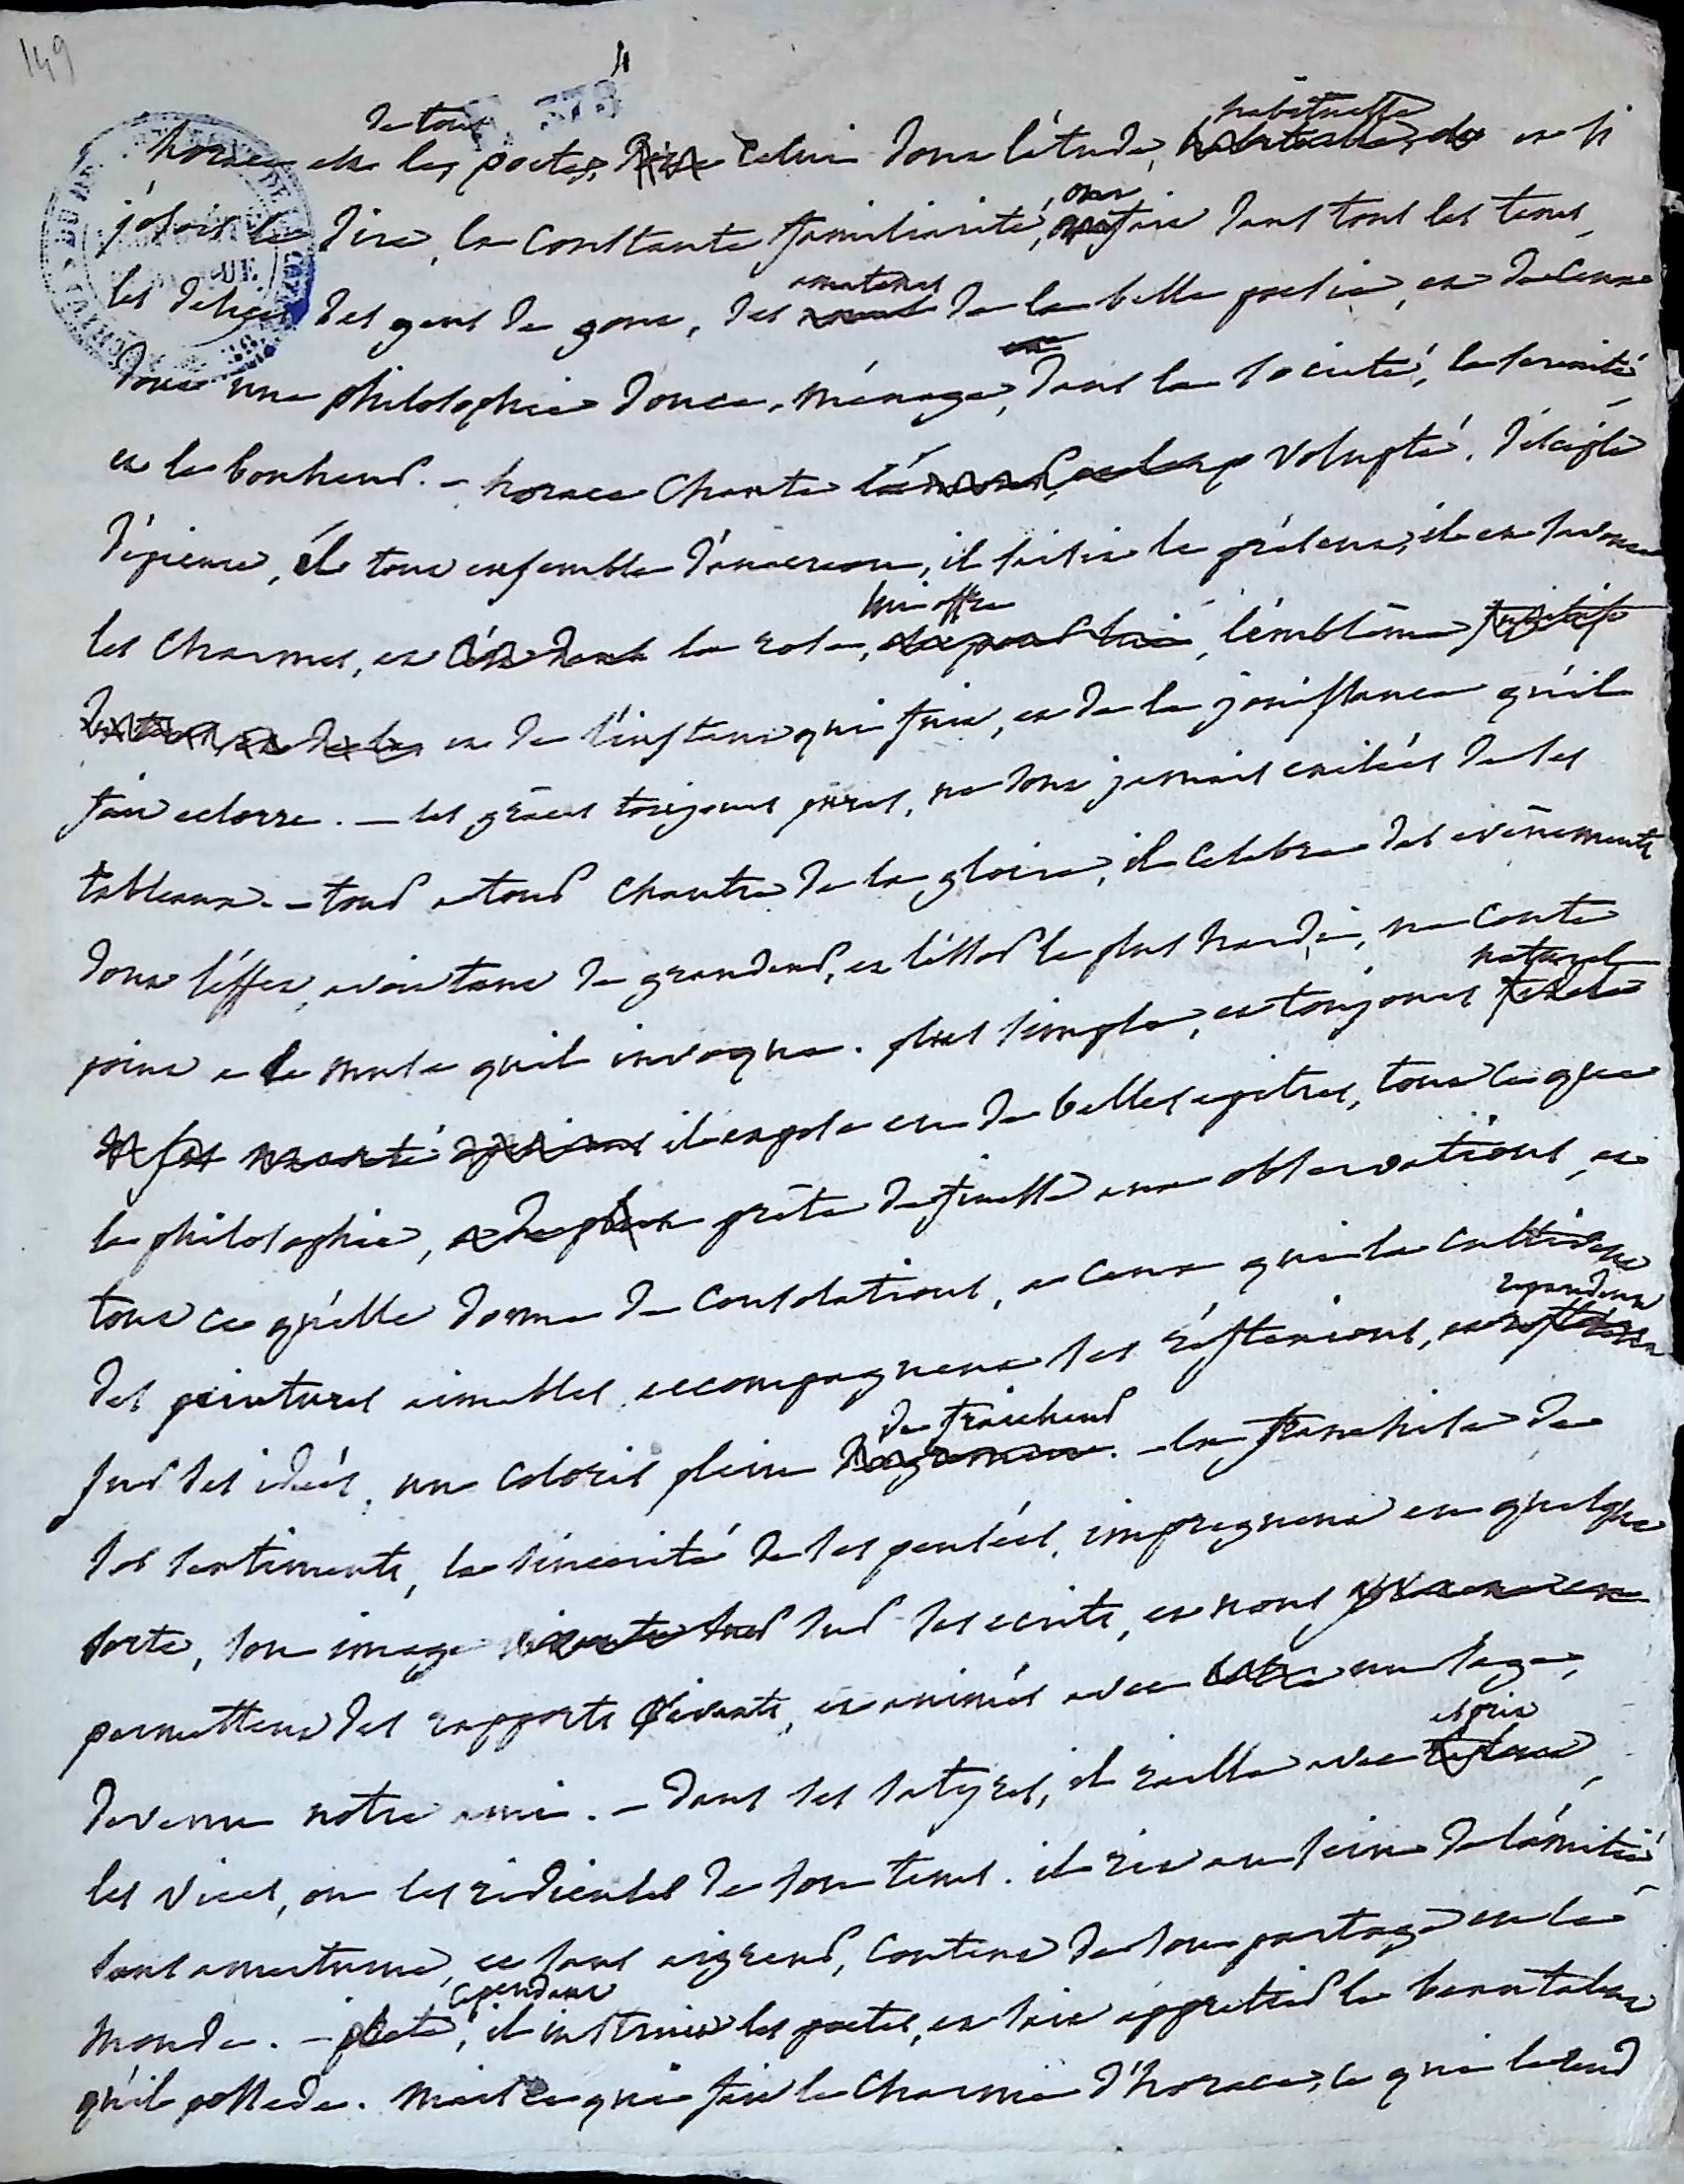 149
4
F. 378
de tous habituelle
horace est les poetes, celui dont l'étude, et si
ont
j'osois le dire, la constante familiarité, fait dans tous les tems,
amateurs
les delices des gens de gout, des de la belle poesie, et de ceux
dont une philosophie douce, ménage, dans la société, la serenité
et le bonheur. - horace chante la volupté. disciple
d'épicure, et tout ensemble d'anacreon, il saisit le présent, il en savoure
lui offre
les charmes, et la rose, l'emblême
et de l'instant qui fuit, et de la jouissance qu'il
fait eclorre. - les grâces toujours pures, ne sont jamais exilées de ses
tableaux. - tour a tour chantre de la gloire, il celebre des evênements
dont l'effet, avoit tant de grandeur, et l'essor le plus hardi, ne coute
naturel
point a la muse qu'il invoque. plus simple, et toujours
il expose en de belles epitres, tout ce que
la philosophie, prête de finesse aux observations, et
tout ce qu'elle donne de consolations, a ceux qui la cultivent
repandent
des peintures aimables accompagnent ses réflexions, et
de fraicheur
sur ses idées, un coloris plein. - la franchise de
ses sentiments, la sincerité de ses pensées, impregnent en quelque
sorte, son image sur ses ecrits, et nous
permettent des rapports vivants, et animés avec un sage,
esprit
devenu notre ami. - dans ses satyres, il raille avec
les vices, ou les ridicules de son tems. il rit au sein de l'amitié
sans amertume, et sans aigreur, content de son partage en ce
cependant
monde. - poete, il instruit les poetes, et sait apprecier le beau talent
qu'il possede. mais ce qui fait le charme d'horace, ce qui le rend